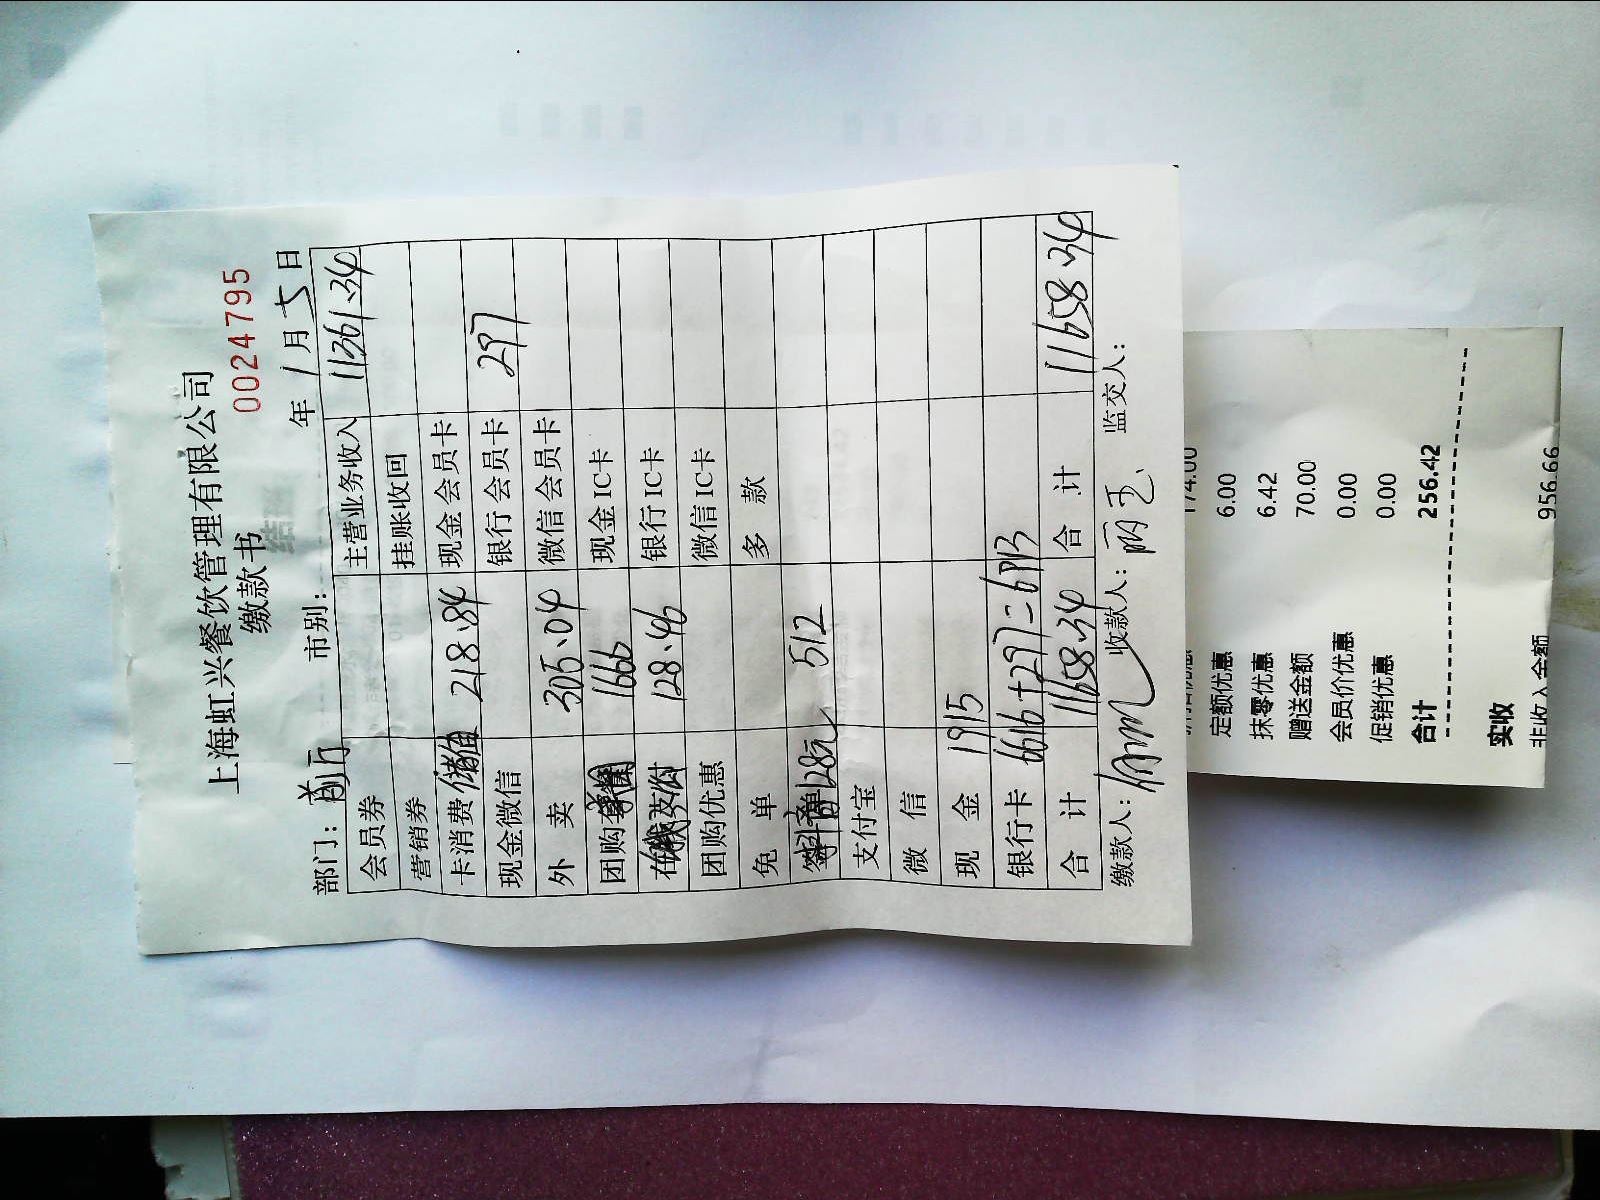 上海虹兴餐饮管理有限公司
缴款书 0024795
部门：前厅 市别： 年 1 月 5 日
会员券 主营业务收入 11361.34
营销券 挂账收回
卡消费 储值 218.84 现金会员卡
现金微信 银行会员卡 297
外卖 305.04 微信会员卡
团购 1666 现金IC卡
128.46 银行IC卡
团购优惠 微信IC卡
免单 多款
128元 512
支付宝
微信
现金 1915
银行卡 6616+297=6913
合计 11658.34 合计 11658.34
缴款人： 收款人： 监交人：
174.00
定额优惠 6.00
抹零优惠 6.42
赠送金额 70.00
会员价优惠 0.00
促销优惠 0.00
合计 256.42
实收 956.66
非收入金额